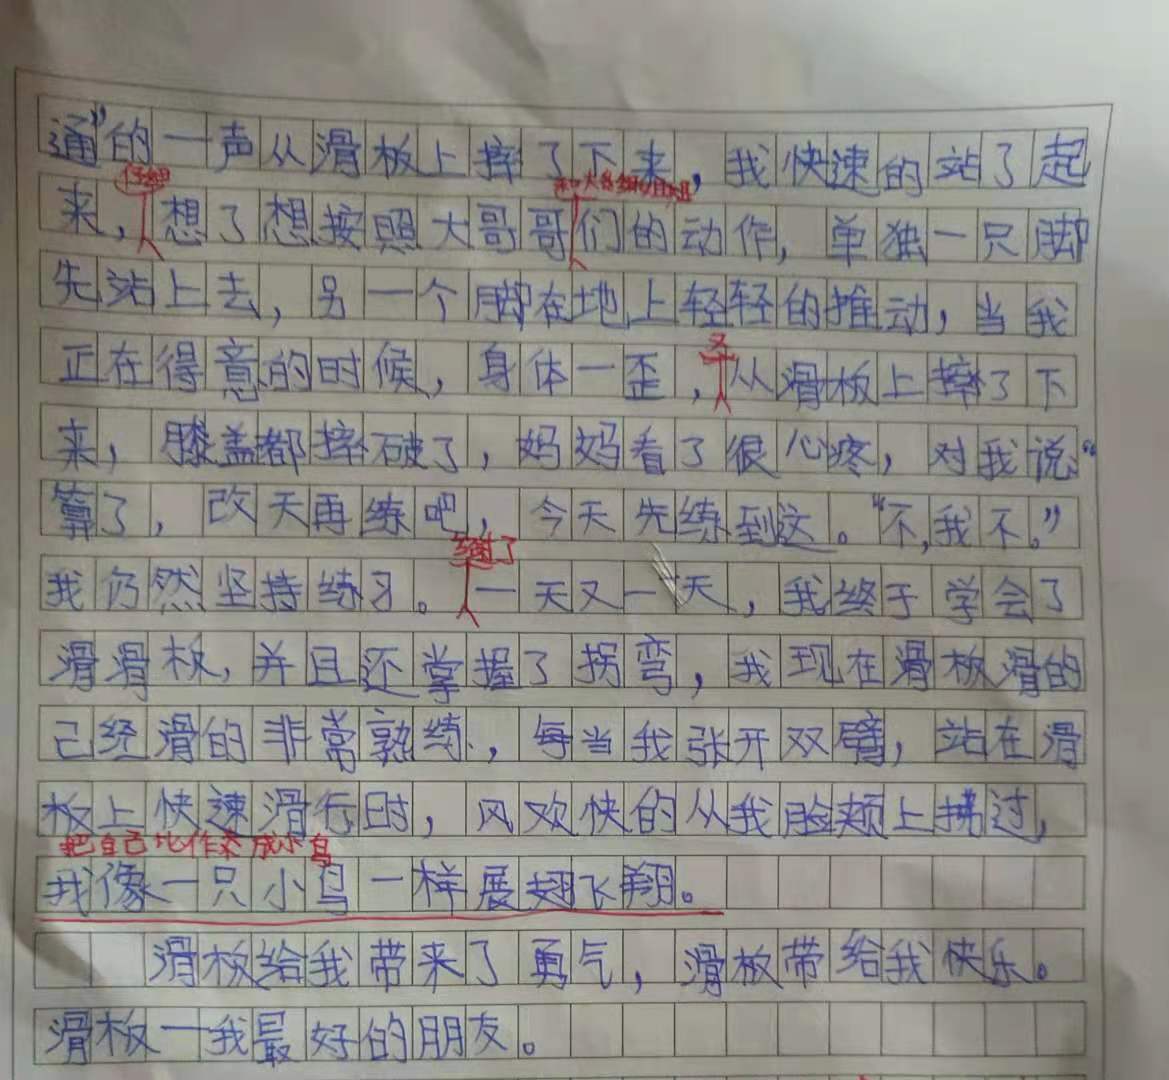 通”的一声从滑板上摔了下来，我快速的站了起
仔细
来，想了想按照大哥哥们的动作，单独一只脚
先站上去，另一个脚在地上轻轻的推动，当我
又
正在得意的时候，身体一歪，从滑板上摔了下
来，膝盖都摔破了，妈妈看了很心疼，对我说“
算了，改天再练吧，今天先练到这。“不，我不。”
经过了
我仍然坚持练习。一天又一天，我终于学会了
滑滑板，并且还掌握了拐弯，我现在滑板滑的
已经滑的非常熟练，每当我张开双臂，站在滑
板上快速滑行时，风欢快的从我脸颊上拂过，
把自己比作成小鸟
我像一只小鸟一样展翅飞翔。
滑板给我带来了勇气，滑板带给我快乐。
滑板一我最好的朋友。